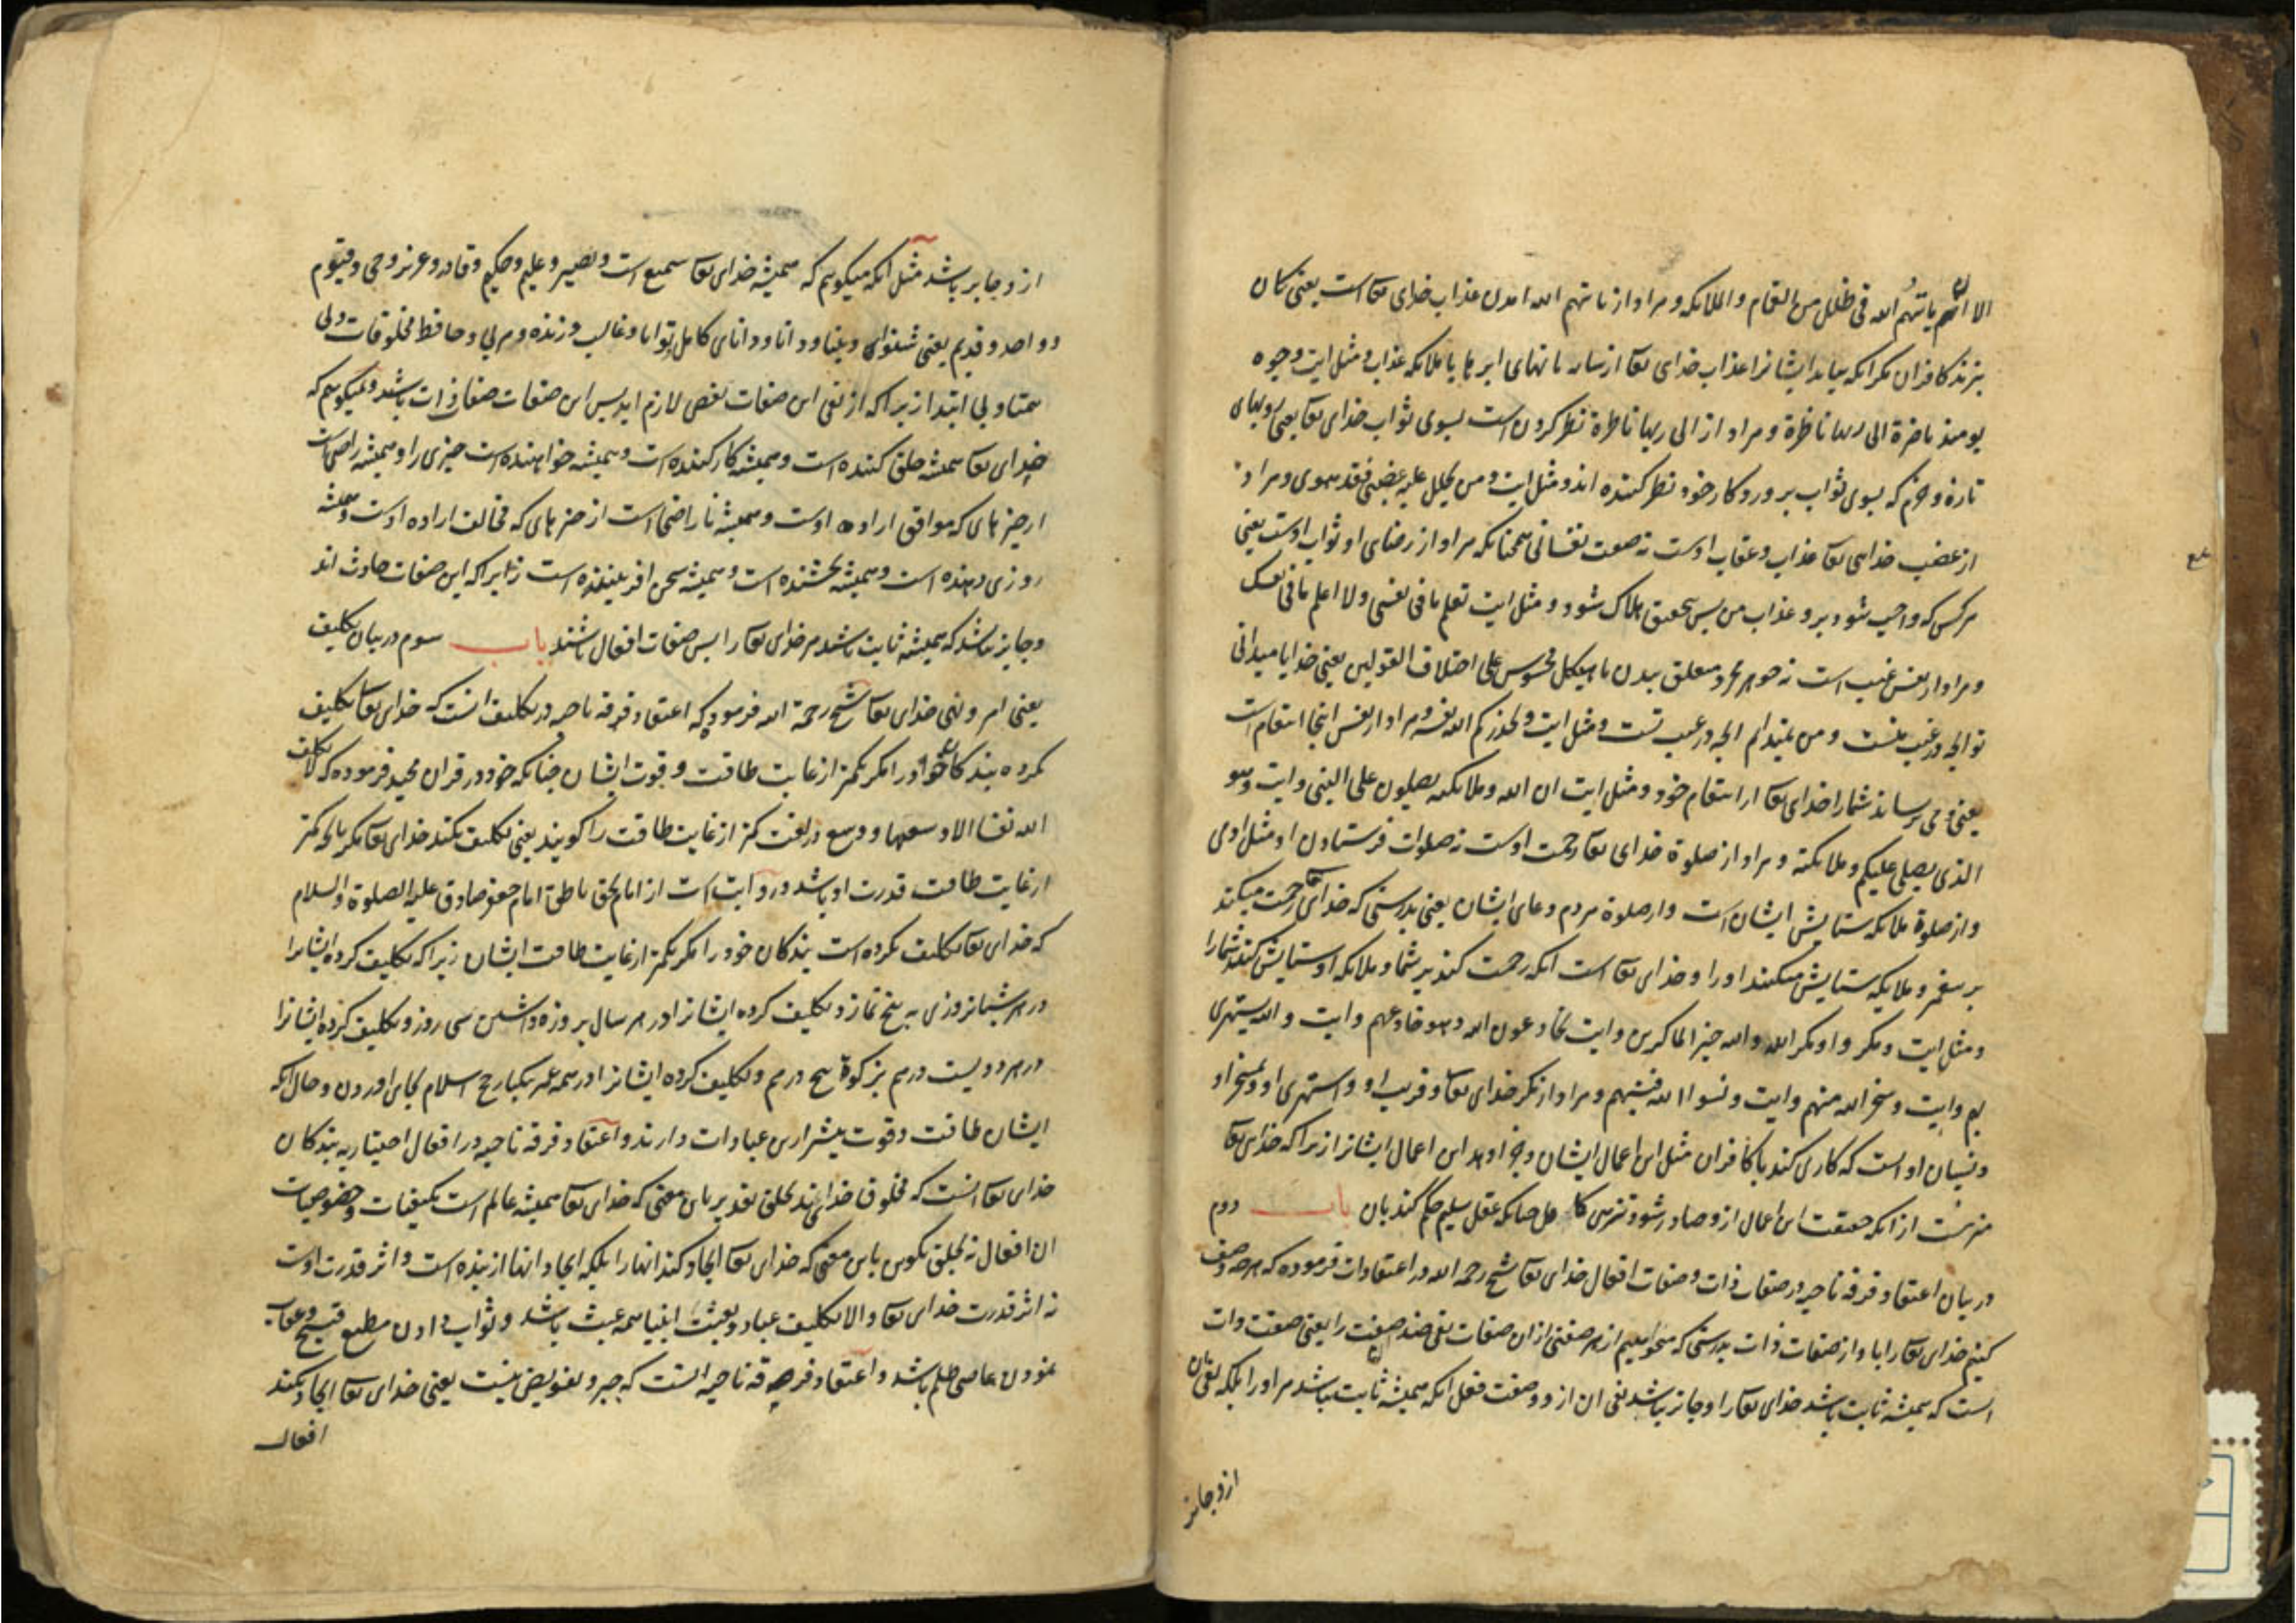 الا ان یاتیهم الله فی ظلل من الغمام والملائکه و مراد از یاتیهم الله امدن عذاب خدای تعا است یعنی کمان
نبرند کافران مکر انکه بیاید ایشانرا عذاب خدای تعا از سایبانهای ابر ها یا ملایکه عذاب و مثل ایت وجوه
یومئذ ناضرة الی ربها ناظرة و مراد از الی ربها ناظرة نظر کردن است بسوی ثواب خدای تعا یعنی رویهای
تازه و خرم که بسوی ثواب پروردکار خود نظر کننده اند و مثل ایت و من یحلل علیه غضبی فقد هوی و مراد
از غضب خدای تعا عذاب و عقاب اوست نه صفت نفسانی همچنانکه مراد از رضای او ثواب اوست یعنی
هر کس که واجب شود برو عذاب من پس بتحقیق هلاک شود و مثل ایت تعلم ما فی نفسی ولا اعلم ما فی نفسک
و مراد از نفس غیب است نه جوهر مجرد متعلق ببدن یا هیکل محسوس علی اختلاف القولین یعنی خدایا میدانی
تو انچه در غیب منست و من نمیدانم انچه در غیب تست و مثل ایت و یحذرکم الله نفسه و مراد از نفس اینجا انتقام است
یعنی می ترساند شما را خدای تعا از انتقام خود و مثل ایت ان الله و ملایکته یصلون علی النبی و ایت و هو
الذی یصلی علیکم و ملایکته و مراد از صلوة خدای تعا رحمت اوست نه صلوات فرستادن او مثل ادمی
و از صلوة ملایکه ستایش ایشان است و از صلوة مردم دعای ایشان یعنی بدرستی که خدای تعا رحمت میکند
بر پیغمبر و ملایکه ستایش میکنند او را و خدای تعا است انکه رحمت کند بر شما و ملایکه او ستایش کنند شما را
و مثل ایت و مکروا و مکر الله والله خیر الماکرین و ایت یخادعون الله و هو خادعهم و ایت والله یستهزی
بهم و ایت و سخر الله منهم و ایت و نسوا الله فنسیهم و مراد از مکر خدای تعا و فریب او و استهزای او و تمسخر او
و نسیان او است که کاری کند با کافران مثل این اعمال ایشان و جزا دهد این اعمال ایشانرا زیرا که خدای تعا
منزه است از انکه حقیقت این اعمال ازو صادر شود چنانکه عقل سلیم حکم کند بان باب دوم
در بیان اعتقاد فرقه ناجیه در صفات ذات و صفات افعال خدای تعا شیخ رحمه الله در اعتقادات فرموده که هر چه وصف
کنیم خدای تعا را بان از صفات ذات بدرستی که میخواهیم از هر صفتی ازان صفات نفی ضد ان صفت را یعنی صفت ذات
است که همیشه ثابت باشد خدای تعا را و جایز نباشد نفی ان ازو و صفت فعل انکه همیشه ثابت نباشد مر او را بلکه نفی ان
ازو جایز
ازو جایز باشد مثل انکه میکوییم که همیشه خدای تعا سمیع است و بصیر و علیم و حکیم و قادر و عزیز و حی و قیوم
و واحد و قدیم یعنی شنوای و بینا و دانا و دانای کامل و توانا و غالب و زنده و مربی و حافظ مخلوقات و بی
همتا و بی ابتدا زیرا که از نفی این صفات نقص لازم اید پس این صفات صفات ذات باشد و نمیکوییم که
خدای تعا همیشه خلق کننده است و همیشه کار کننده است و همیشه خواهنده است چیزی را و همیشه راضی است
از چیزهای که موافق اراده اوست و همیشه ناراضی است از چیزهای که مخالف اراده اوست و همیشه
روزی دهنده است و همیشه بخشنده است و همیشه سخن افریننده است زیرا که این صفات حادث اند
و جایز نباشد که همیشه ثابت باشد مر خدای تعا را پس صفات افعال باشند باب سوم در بیان تکلیف
یعنی امر و نهی خدای تعا شیخ رحمة الله فرموده که اعتقاد فرقه ناجیه در تکلیف انست که خدای تعا تکلیف
نکرده بندکان خود را مکر بکمتر از غایت طاقت و قوت ایشان چنانکه خود در قران مجید فرموده که لا یکلف
الله نفسا الا وسعها و وسع در لغت کمتر از غایت طاقت را کویند یعنی تکلیف نکند خدای تعا مکر بانچه کمتر
از غایت طاقت قدرت او باشد و روایت است از امام بحق ناطق امام جعفر صادق علیه الصلوة والسلام
که خدای تعا تکلیف نکرده است بندکان خود را مکر بکمتر از غایت طاقت ایشان زیرا که تکلیف کرده ایشانرا
در هر شبانروزی به پنج نماز و تکلیف کرده ایشانرا در هر سال بروزه داشتن سی روز و تکلیف کرده ایشانرا
در هر دویست درهم بزکوة پنج درهم و تکلیف کرده ایشانرا در همه عمر یکبار حج اسلام بجای اوردن و حال انکه
ایشان طاقت و قوت بیشتر ازین عبادات دارند و اعتقاد فرقه ناجیه در افعال اختیاریه بندکان
خدای تعا انست که مخلوق خدایند بخلق تقدیر باین معنی که خدای تعا همیشه عالم است بکیفیات و خصوصیات
ان افعال نه بخلق تکوین باین معنی که خدای تعا ایجاد کند انها را بلکه ایجاد انها از بنده است و اثر قدرت اوست
نه اثر قدرت خدای تعا و الا تکلیف عباد و بعثت انبیا همه عبث باشد و ثواب دادن مطیع قبیح و عقاب
نمودن عاصی ظلم باشد و اعتقاد فرقه ناجیه انست که جبر و تفویض نیست یعنی خدای تعا ایجاد نکند
افعال